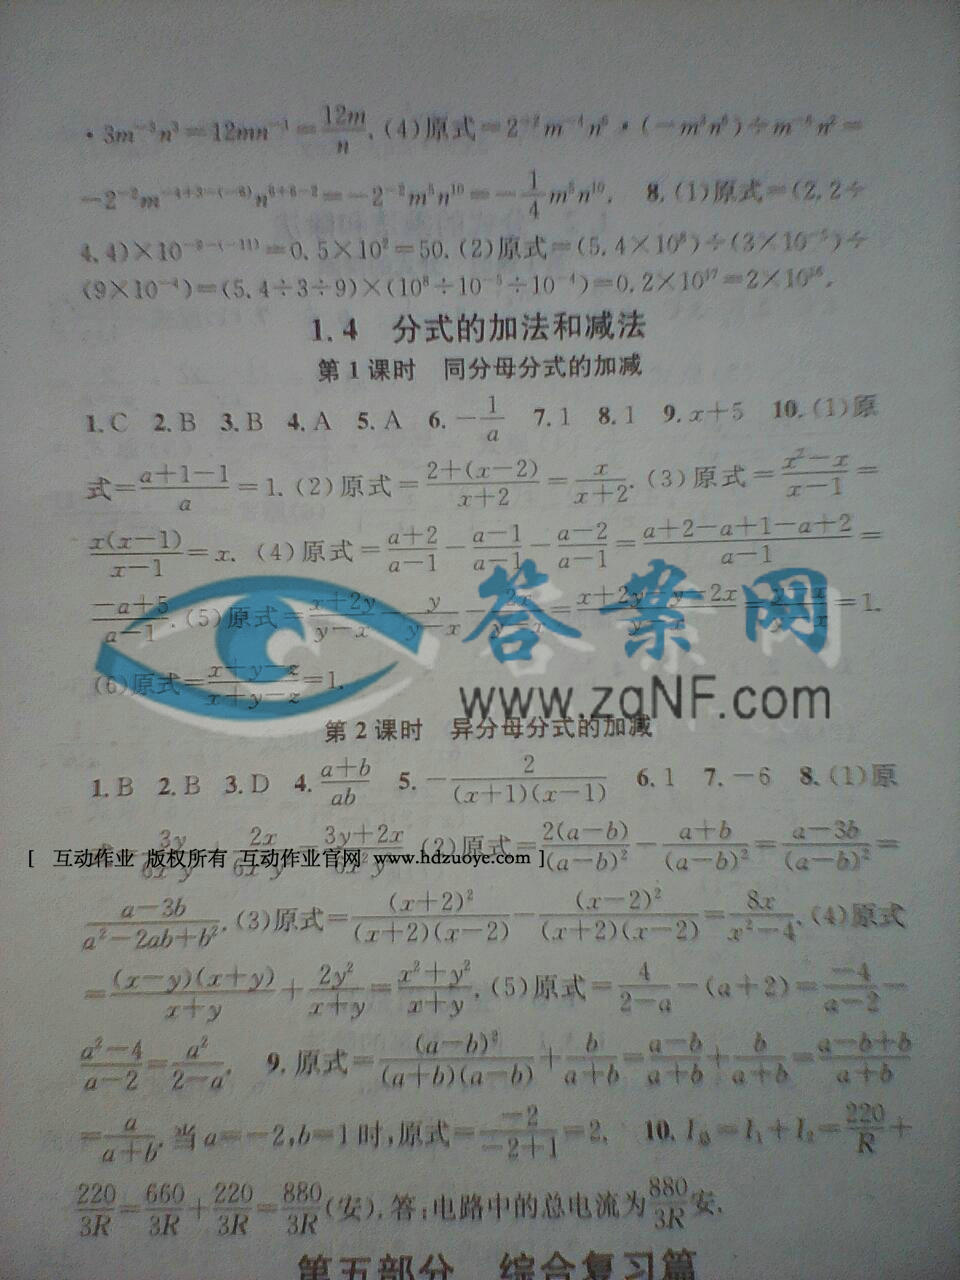 ·3m⁻³n³=12mn⁻¹=12m/n. (4)原式=2⁻²m⁻⁴n⁶·(-m³n⁶)÷m⁻⁶n²=
-2⁻²m⁻⁴⁺³⁻⁽⁻⁶⁾n⁶⁺⁶⁻²=-2⁻²m⁵n¹⁰=-1/4 m⁵n¹⁰. 8.(1)原式=(2.2÷
4.4)×10⁻⁹⁻⁽⁻¹¹⁾=0.5×10²=50.(2)原式=(5.4×10⁸)÷(3×10⁻⁵)÷
(9×10⁻⁴)=(5.4÷3÷9)×(10⁸÷10⁻⁵÷10⁻⁴)=0.2×10¹⁷=2×10¹⁶.
1.4 分式的加法和减法
第1课时 同分母分式的加减
1.C 2.B 3.B 4.A 5.A 6.-1/a 7.1 8.1 9.x+5 10.(1)原
式=(a+1-1)/a=1.(2)原式=(2+(x-2))/(x+2)=x/(x+2).(3)原式=(x²-x)/(x-1)=
x(x-1)/(x-1)=x. (4)原式=(a+2)/(a-1)-(a-1)/(a-1)-(a-2)/(a-1)=(a+2-a+1-a+2)/(a-1)=
(-a+5)/(a-1).(5)原式=(x+2y)/(y-x) y/(y-x) 2x/(y-x)=(x+2y y-2x)/(y-x)= =1.
(6)原式=(x+y-z)/(x+y-z)=1.
答案网
www.zqNF.com
第2课时 异分母分式的加减
1.B 2.B 3.D 4.(a+b)/ab 5.-2/((x+1)(x-1)) 6.1 7.-6 8.(1)原
3y 2x 3y+2x (2)原式=2(a-b)/(a-b)²-(a+b)/(a-b)²=(a-3b)/(a-b)²=
[ 互动作业 版权所有 互动作业官网 www.hdzuoye.com ]
(a-3b)/(a²-2ab+b²).(3)原式=(x+2)²/((x+2)(x-2))-(x-2)²/((x+2)(x-2))=8x/(x²-4).(4)原式
=(x-y)(x+y)/(x+y)+2y²/(x+y)=(x²+y²)/(x+y).(5)原式=4/(2-a)-(a+2)=-4/(a-2)-
(a²-4)/(a-2)=a²/(2-a). 9.原式=(a-b)²/((a+b)(a-b))+b/(a+b)=(a-b)/(a+b)+b/(a+b)=(a-b+b)/(a+b)
=a/(a+b).当a=-2,b=1时,原式=-2/(-2+1)=2. 10.I总=I₁+I₂=220/R+
220/3R=660/3R+220/3R=880/3R(安).答:电路中的总电流为880/3R安.
第五部分 综合复习篇